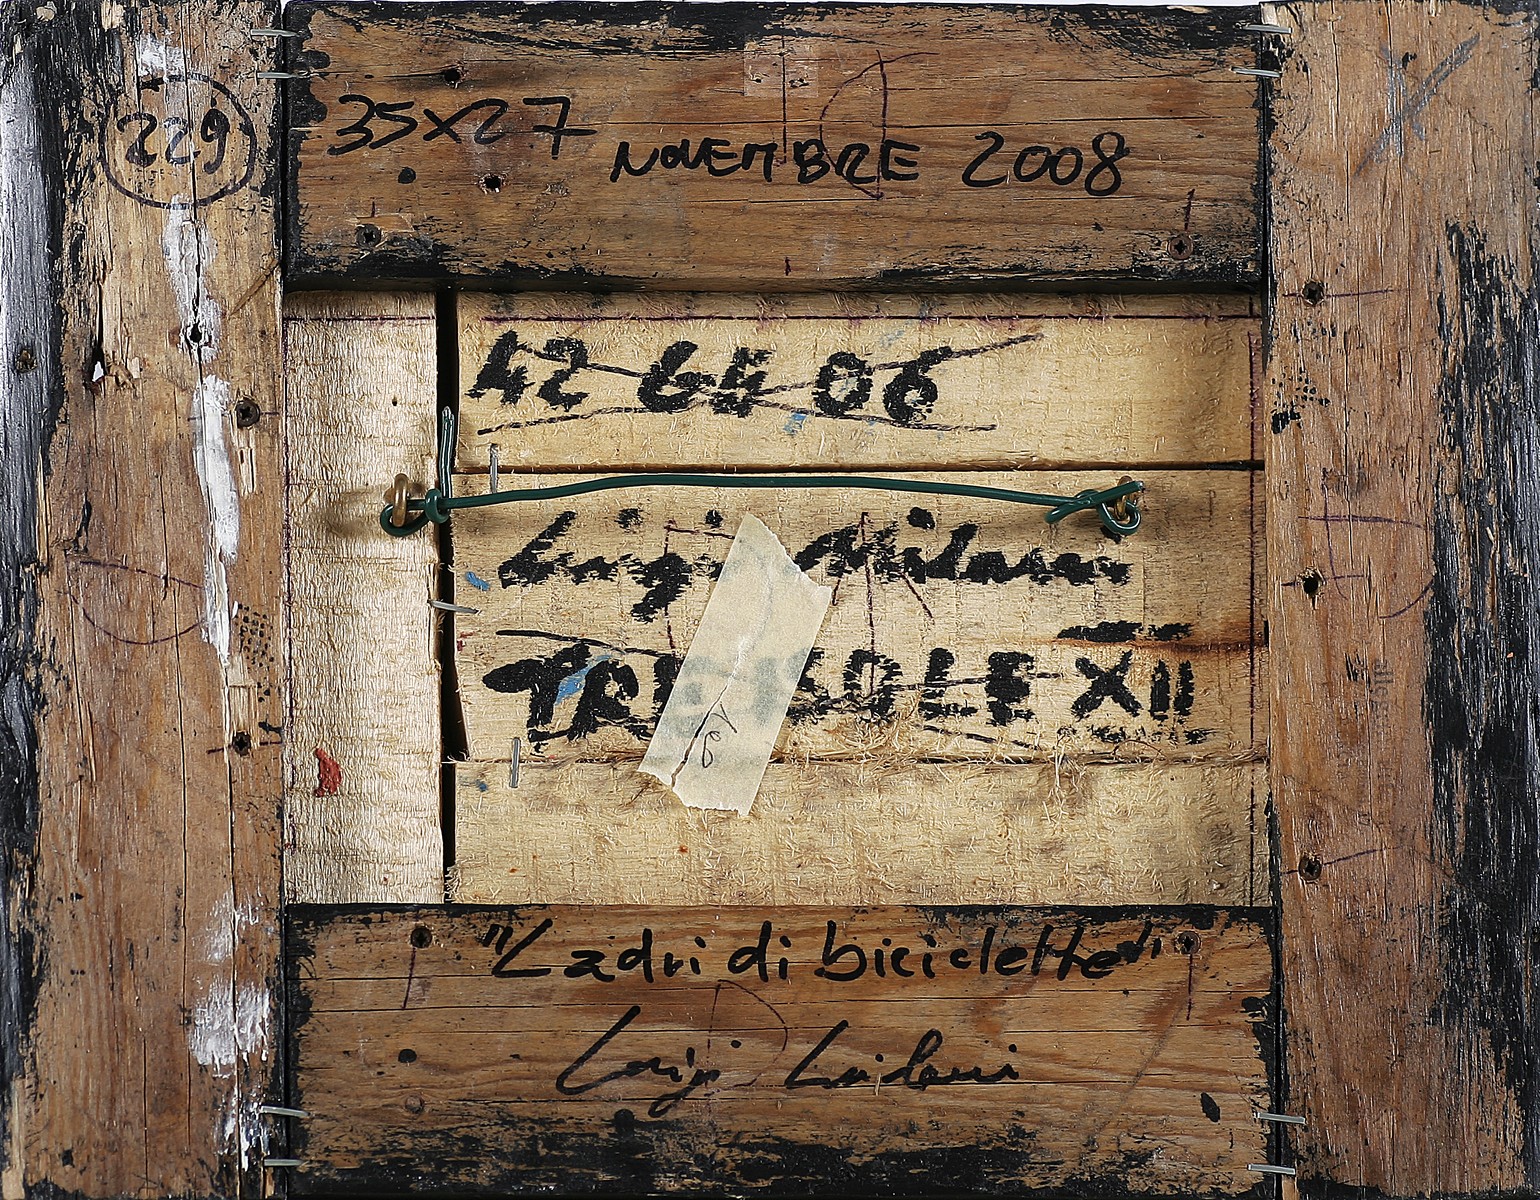 229
35x27
NOVEMBRE 2008
42 64 06
Luigi Milani
XII
"Ladri di biciclette"
Luigi